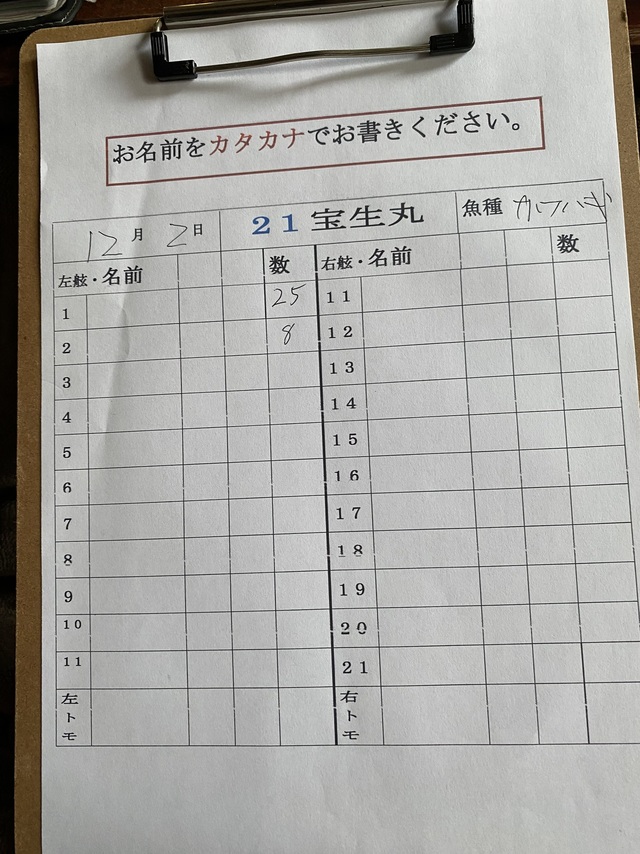 お名前をカタカナでお書きください。
12月 2日 21宝生丸 魚種 カワハギ
左舷・名前 数 右舷・名前 数
1 25 11
2 8 12
3 13
4 14
5 15
6 16
7 17
8 18
9 19
10 20
11 21
左トモ 右トモ